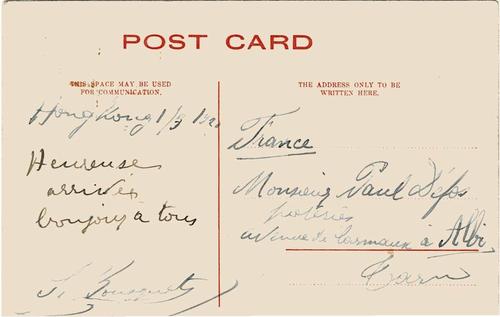 POST CARD
THIS SPACE MAY BE USED
FOR COMMUNICATION.
THE ADDRESS ONLY TO BE
WRITTEN HERE.
HongKong 1/3
Heureuse
arrivée
bonjour à tous
Bousquet
France
Monsieur Paul
avenue de Carmaux à Albi
Tarn